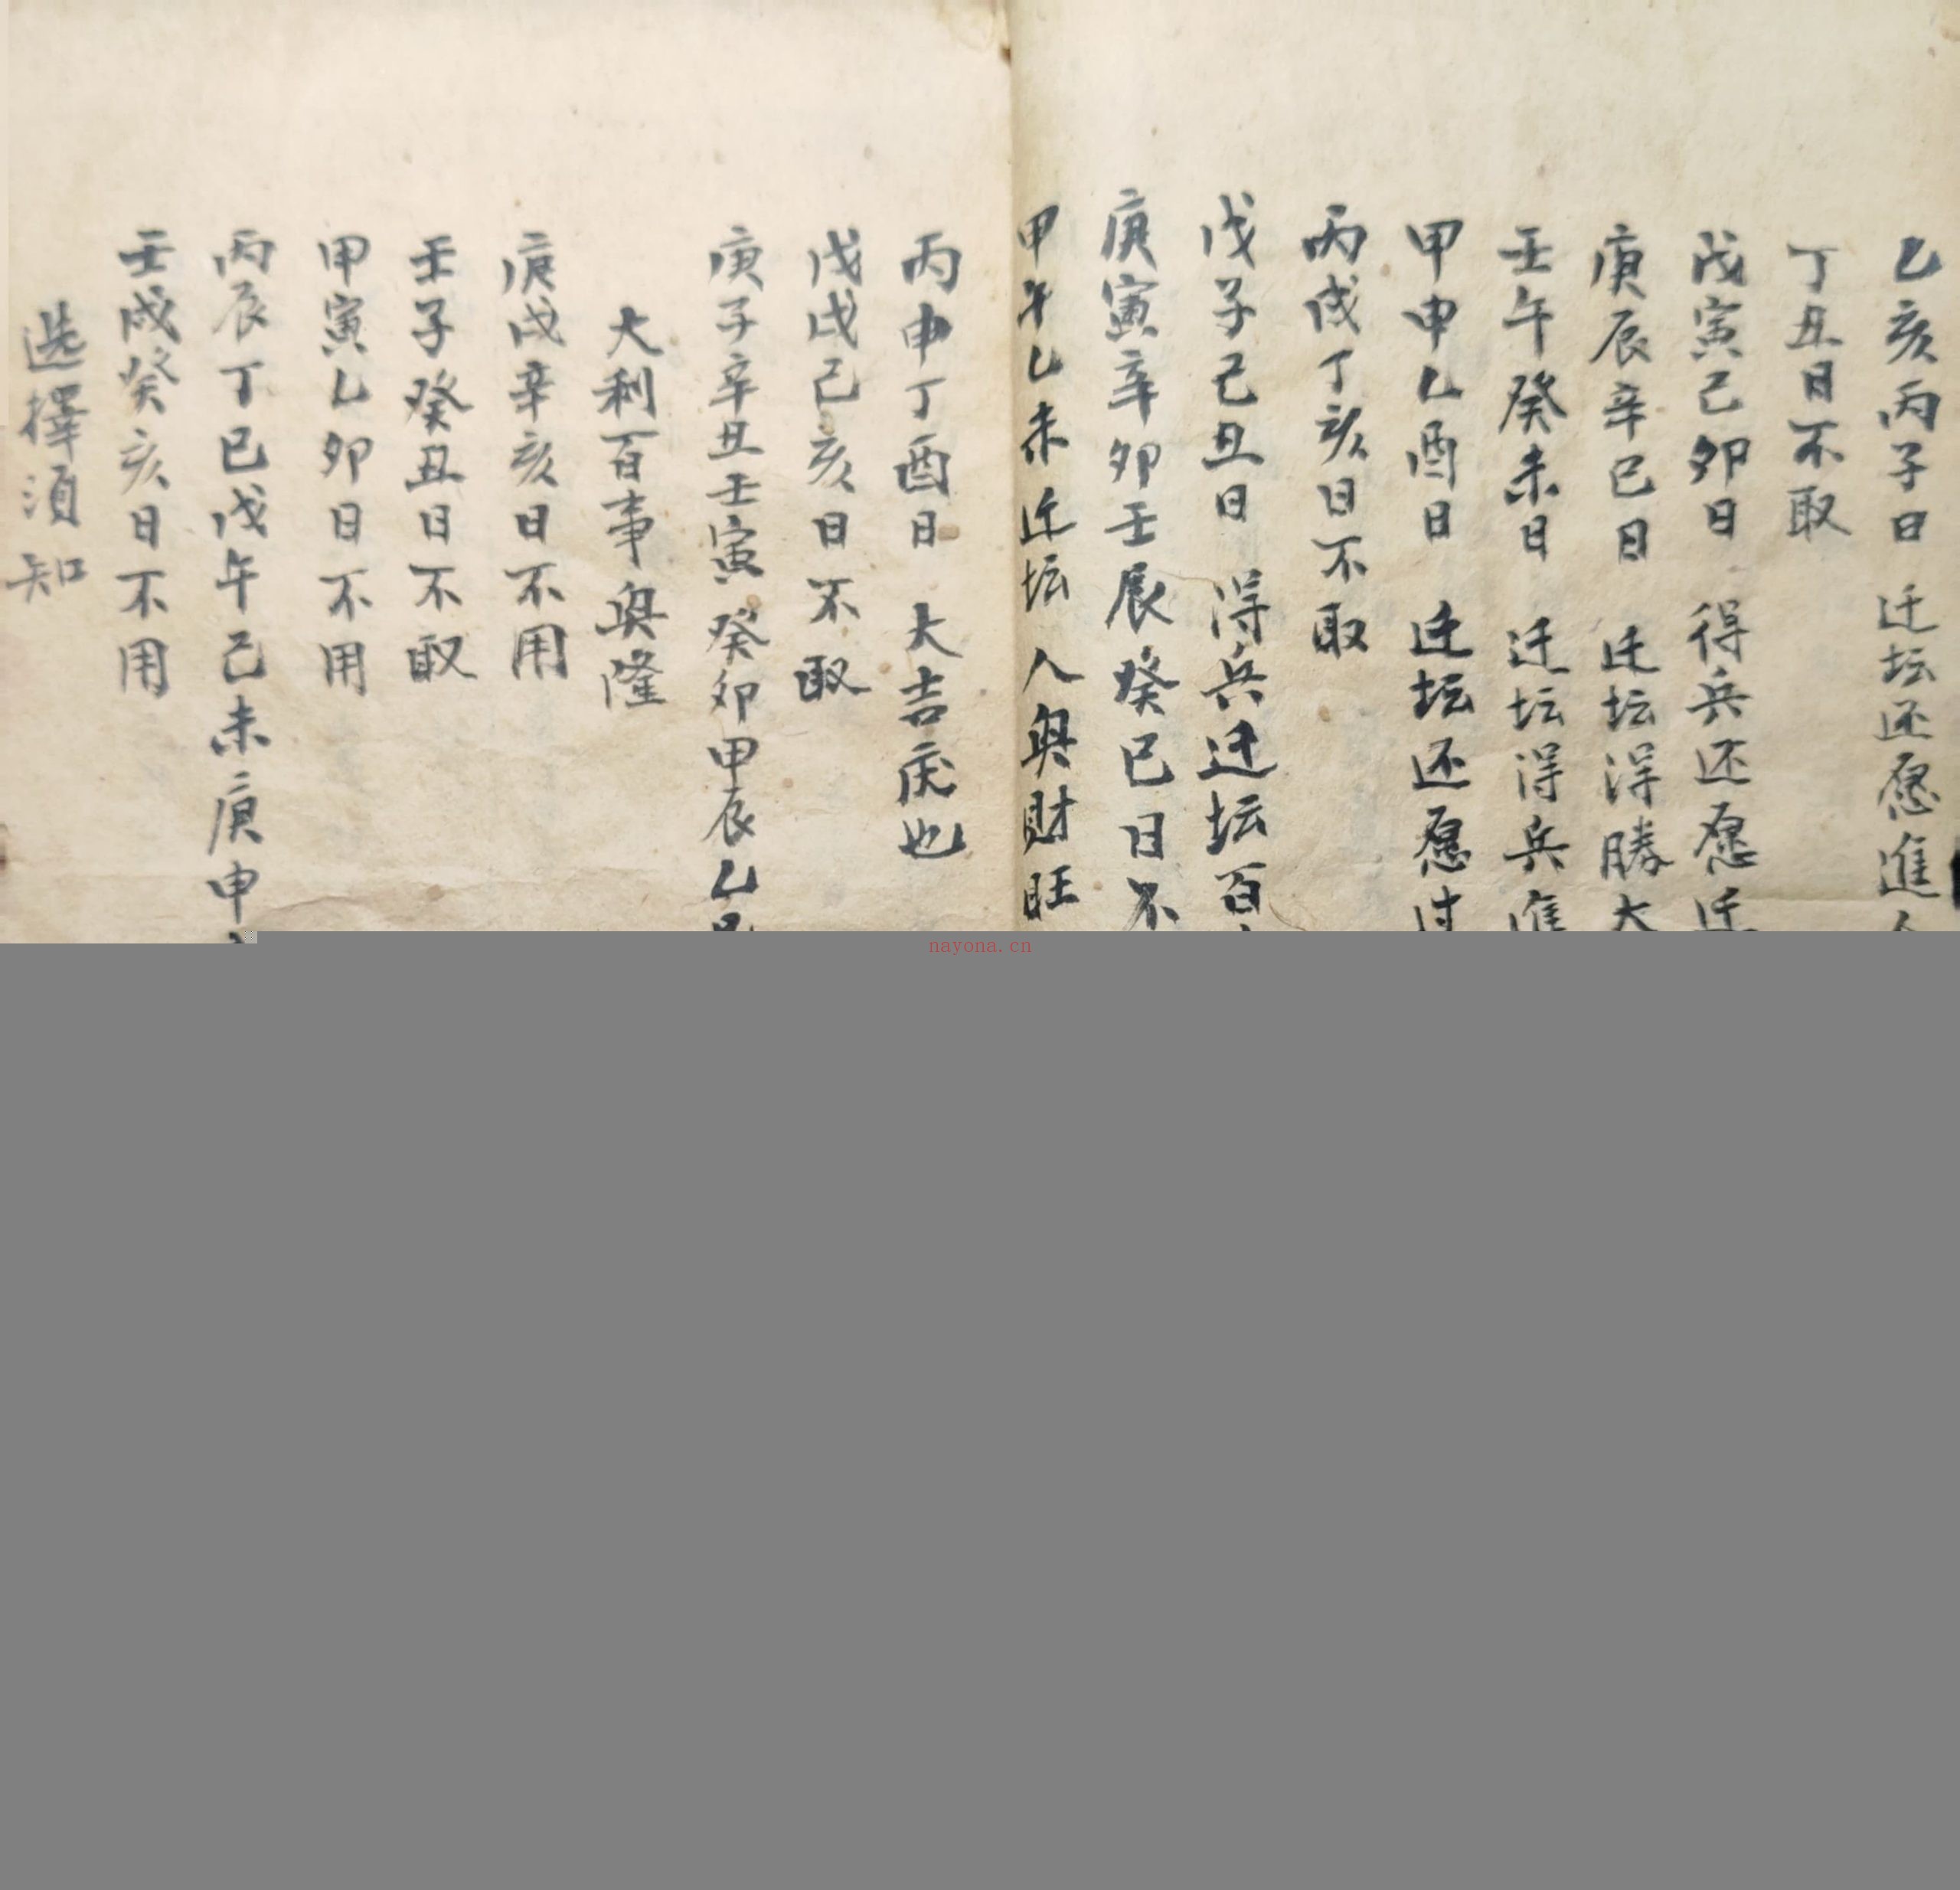 乙亥丙子日 迁坛还愿進
丁丑日不取
戊寅己卯日 得兵还愿迁
庚辰辛巳日 迁坛得勝大
壬午癸未日 迁坛得兵進
甲申乙酉日 迁坛还愿过
丙戌丁亥日不取
戊子己丑日 得兵迁坛百
庚寅辛卯壬辰癸巳日不
甲午乙未迁坛 人興财旺
丙申丁酉日 大吉庆也
戊戌己亥日不取
庚子辛丑壬寅癸卯甲辰乙
大利百事興隆
庚戌辛亥日不用
壬子癸丑日不取
甲寅乙卯日不用
丙辰丁巳戊午己未庚申
壬戌癸亥日不用
选擇須知
nayona.cn